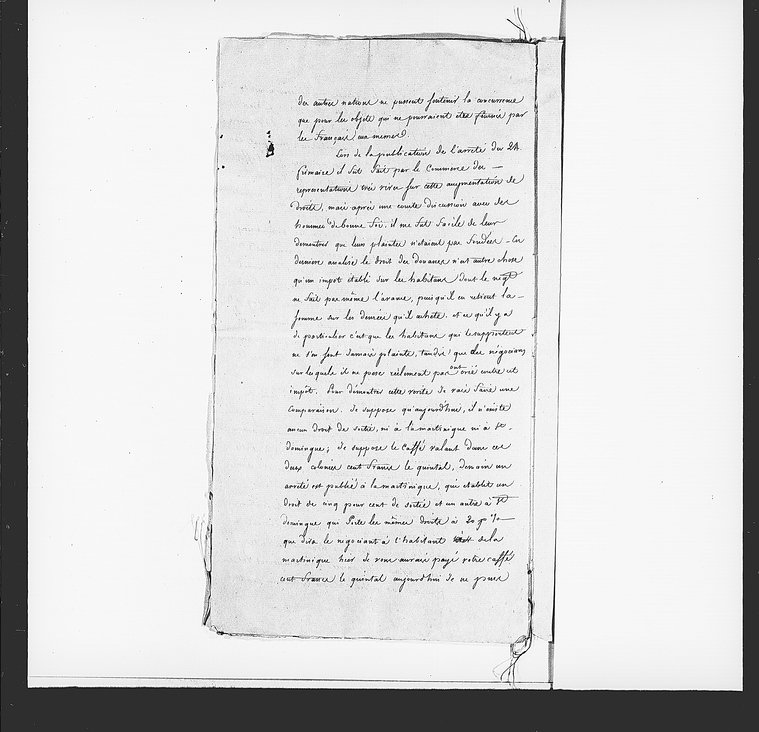 des autres nations ne pussent soutenir la concurrence
que pour les objets qui ne pourraient etre fournis par
les français eux memes.
Lors de la publication de l'arreté du 24.
frimaire il fut fait par le Commerce des —
representations très vives sur cette augmentation de
droits, mais après une courte discussion avec des
hommes de bonne foi, il me fut facile de leur
demontrer que leurs plaintes n'etaient pas fondées - En
derniere analise le droit des douanes n'est autre chose
qu'un impot etabli sur les habitans dont le négt
ne fait pas même l'avance, puisqu'il en retient la —
somme sur les denrées qu'il achète. et ce qu'il y a
de particulier c'est que les habitans qui le supportent
ne s'en sont jamais plaints, tandis que les négocians
sur lesquels il ne pese réelement pas ont crié contre cet
impôt. Pour démontrer cette verité je vais faire une
comparaison. Je suppose qu'aujourd'hui, il n'existe
aucun droit de sortie, ni à la martinique ni à St. -
domingue; Je suppose le Caffé valant dans ces
deux colonies cent francs le quintal, demain un
arreté est publié à la martinique, qui etablit un
droit de cinq pour cent de sortie et un autre à St
domingue qui porte les mêmes droits à 20 p % —
que dira le negociant à l'habitant de la
martinique hier je vous aurais payé votre caffé
cent francs le quintal aujourd'hui je ne puis